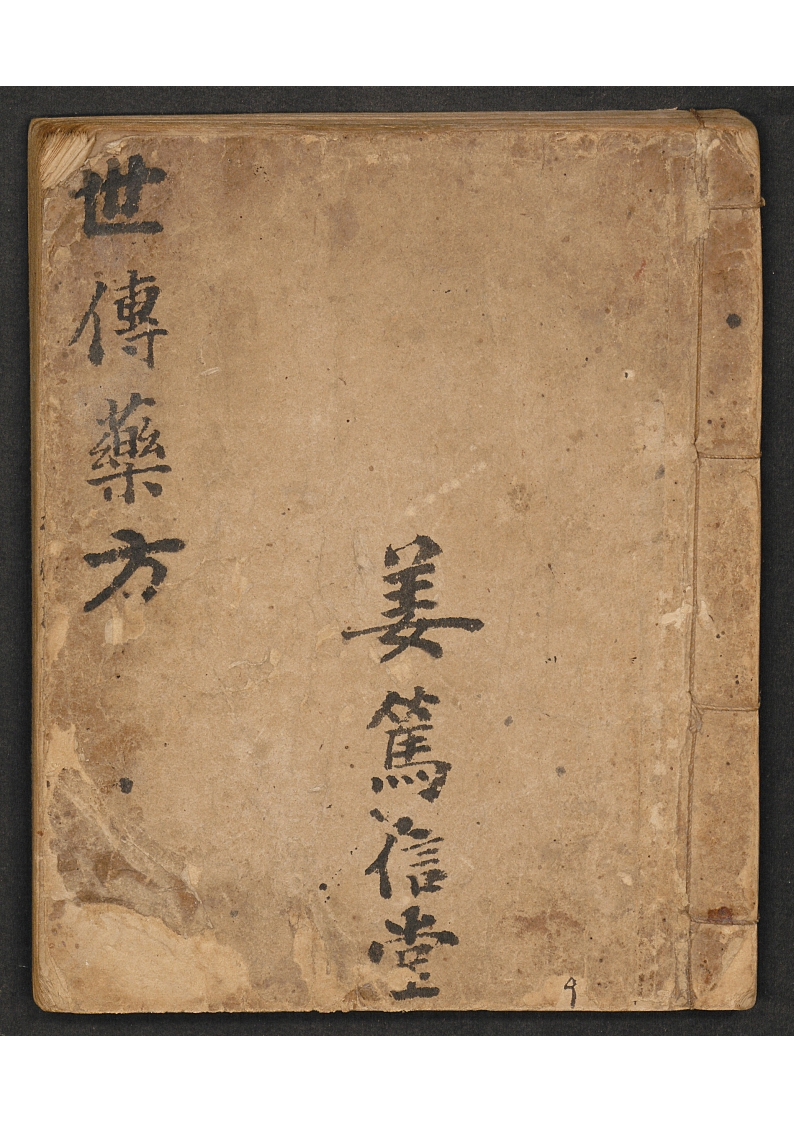 姜篤信堂
世傳藥方